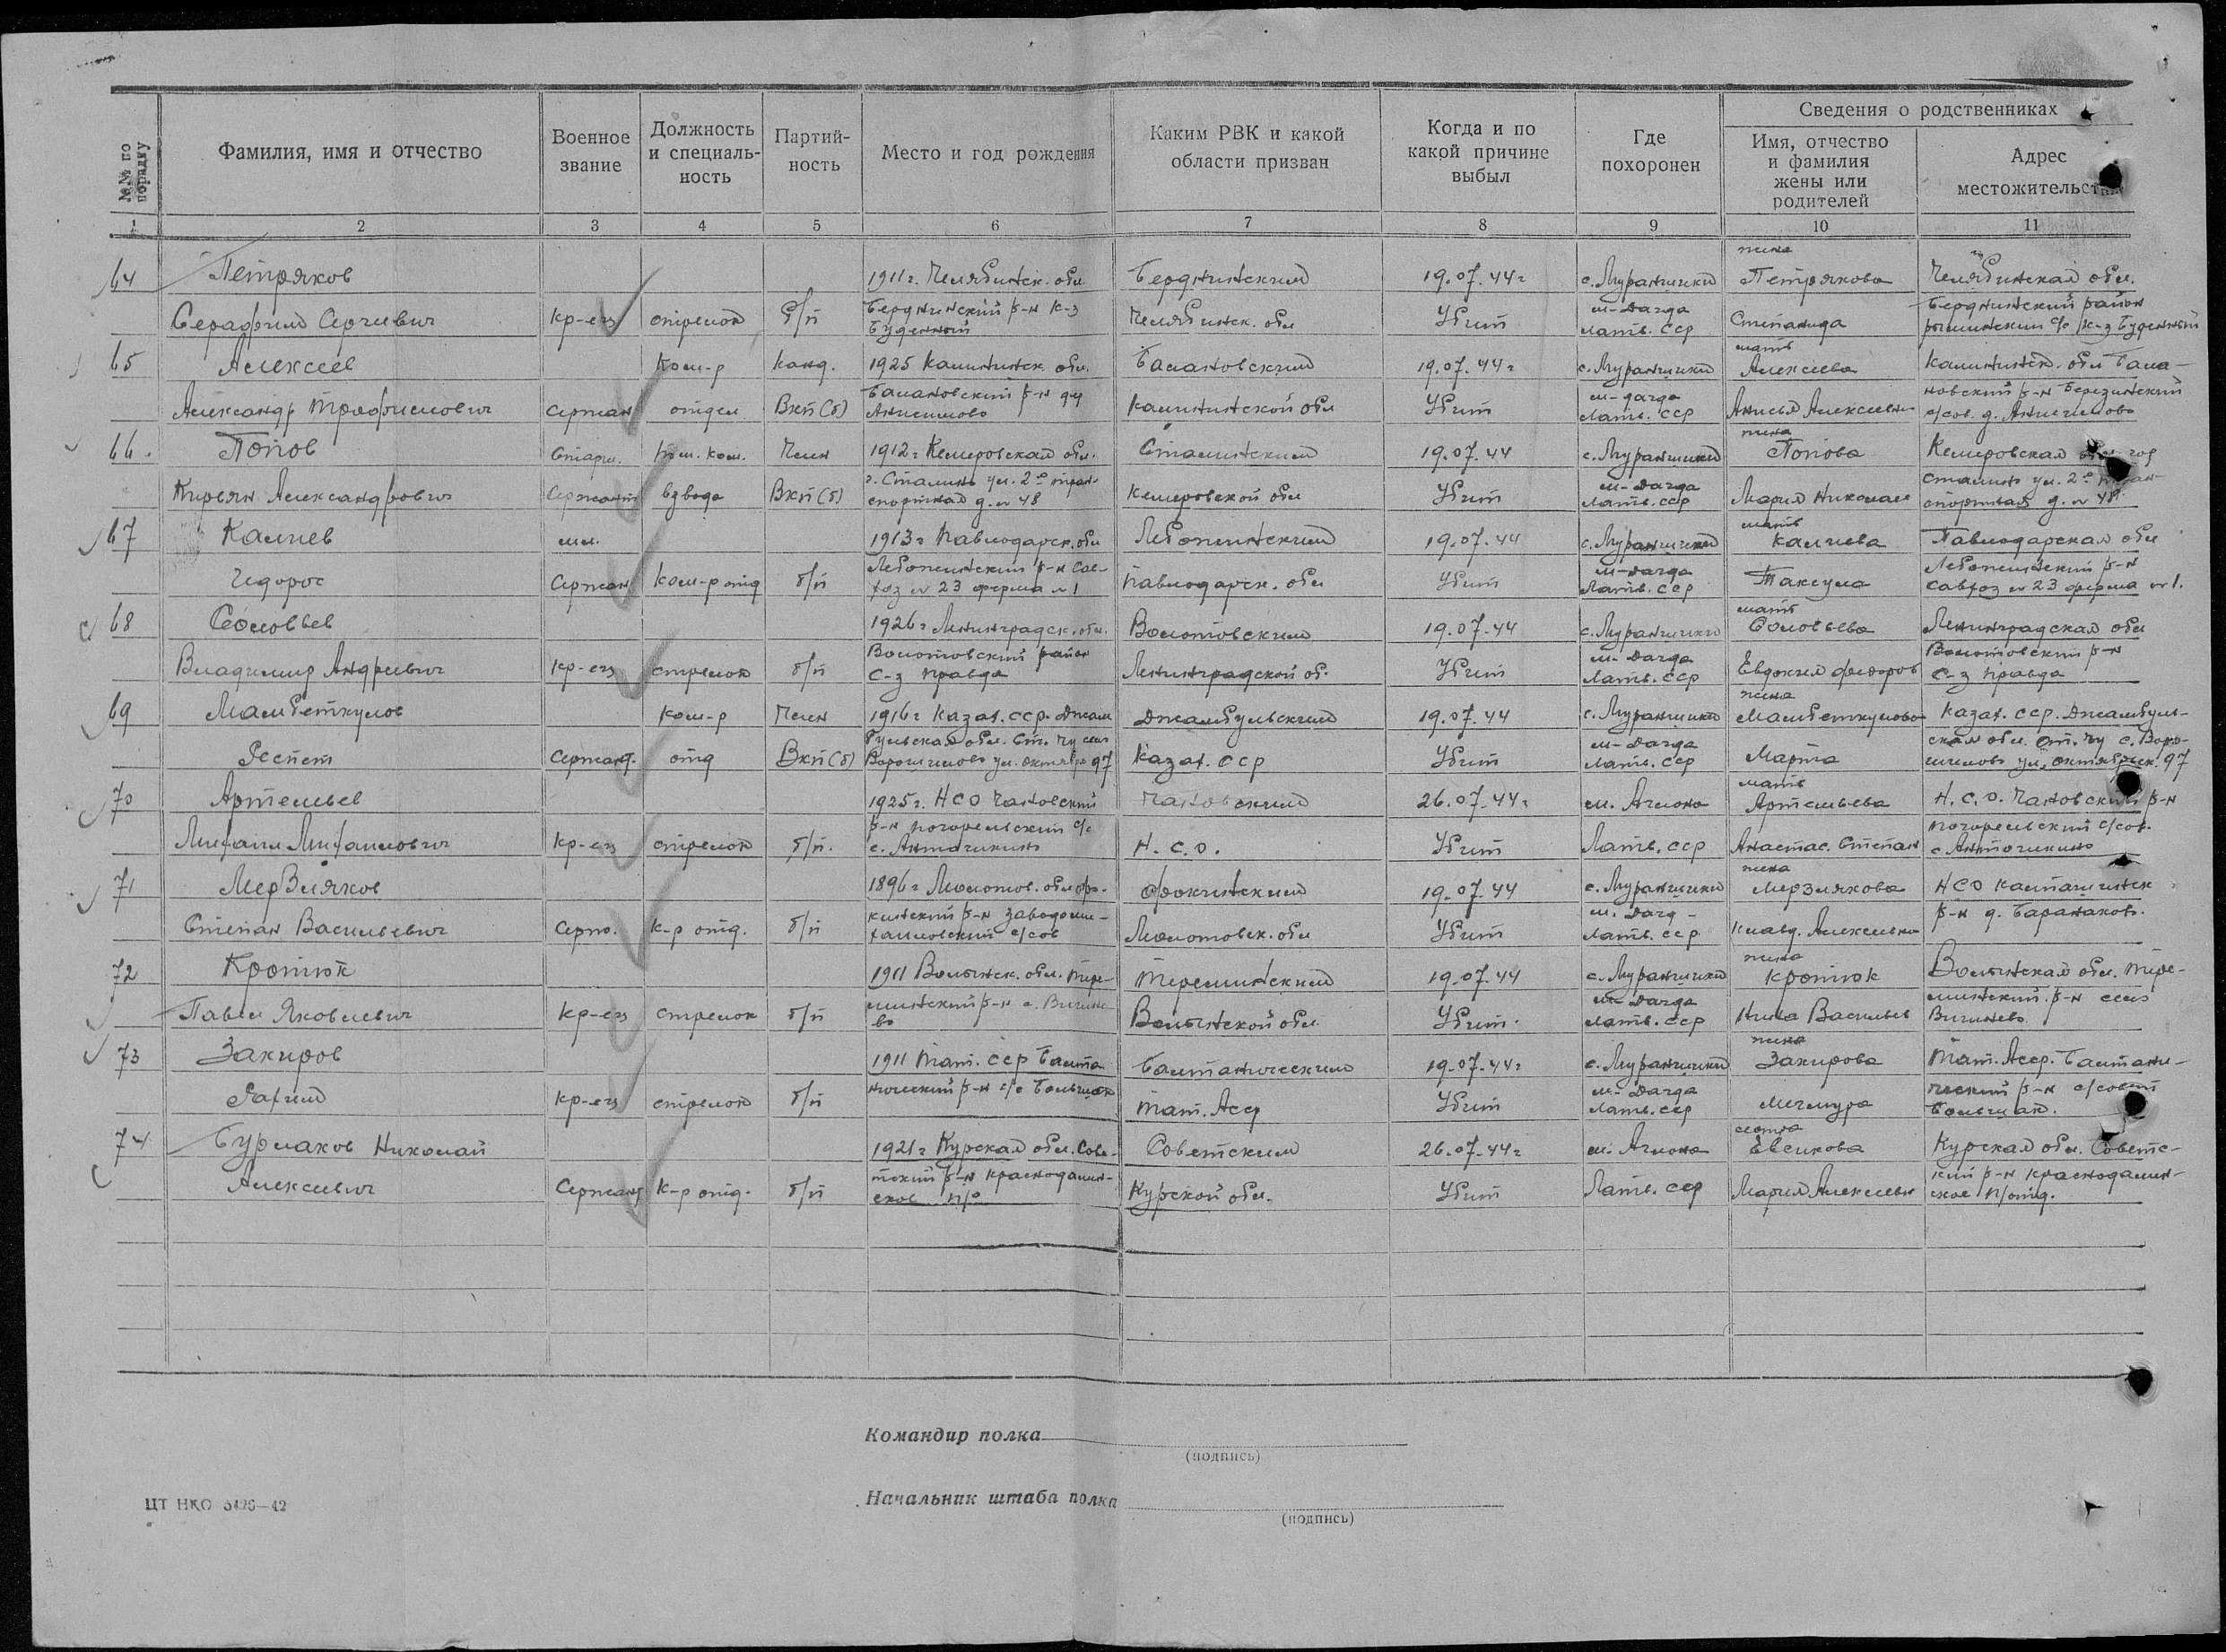 №№ по порядку
Фамилия, имя и отчество
Военное звание
Должность и специальность
Партийность
Место и год рождения
Каким РВК и какой области призван
Когда и по какой причине выбыл
Где похоронен
Сведения о родственниках
Имя, отчество и фамилия жены или родителей
Адрес местожительства
1 2 3 4 5 6 7 8 9 10 11
жена
64 Петряков 1911 г. Челябинск. обл Бердяшский 19.07.44 г с. Муранишки Петрякова Челябинская обл.
Серафим Сергеевич кр-ец стрелок б/п р-н к-з Буденный Челябинск. обл Убит м-Дагда Латв. ССР Степанида район с/с к-з Буденный
мать
65 Алексеев Ком-р Канд. 1925 Калининск. обл. 19.07.44 г с. Муранишки Алексеева Калининск. обл
Александр Трофимович Сержан отдел ВКП(б) р-н Анисимово Калининской обл Убит м-Дагда Латв. ССР Анисья Алексеевн р-н Березинский с/сов. д. Анисимово
жена
66. Попов Старш. Пом. ком. Член 1912 г Кемеровская обл. Сталинский 19.07.44 с. Муранишки Попова Кемеровская обл. гор
Кирьян Александрович Сержант взвода ВКП(б) г. Сталинск ул. 2ая транспортная д. № 48 Кемеровской обл Убит м-Дагда Латв. ССР Мария Николаев ул. 2ая транспортная д. № 48
мать
67 Калиев мл. 1913 г Павлодарск. обл Лебяжинский 19.07.44 с. Муранишки Калиева Павлодарская обл
Сержан Ком-р отд б/п Лебяжинский р-н Совхоз № 23 ферма № 1 Павлодарск. обл Убит м-Дагда Латв. ССР Таксума Лебяжинский р-н Савхоз № 23 ферма № 1.
мать
68 Соловьев 1926 г Ленинградск. обл. Волотовский 19.07.44 с. Муранишки Соловьева Ленинградская обл
Владимир Андреевич кр-ец стрелок б/п Волотовский район с-з правда Ленинградской об. Убит м-Дагда Латв. ССР Евдокия Федоров Волотовский р-н с-з правда
жена
69 Мамбеткулов Ком-р Член 1916 г Казах. ССР. Джам Джамбульский 19.07.44 с. Муранишки Мамбеткулова Казах. ССР. Джамбуль-
Сержант. отд ВКП(б) бульская обл. ст. Чу село Ворошилово ул. Октябрь 97 Казах. ССР Убит м-Дагда Латв. ССР Марта ская обл. ст. Чу с. Ворошилово ул. октябрьск. 97
мать
70 Артемьев 1925 г. НСО Чановский Чановский 26.07.44 г м. Аглона Артемьева Н.С.О. Чановский р-н
Михаил Михаилович кр-ец стрелок б/п. р-н погорельский с/с Н.С.О. Убит Латв. ССР Анастас. Степан погорельский с/сов.
жена
71 Мерзляков 1896 г Молотов. обл фо- Фокинский 19.07.44 с. Муранишки Мерзлякова НСО
Степан Васильевич Серж. К-р отд. б/п кинский р-н с/сов Молотовск. обл Убит м. Дагд- Латв. ССР Клавд. Алексеевна р-н
жена
72 Кротюк 1911 Волынск. обл. Тере- Теремнский 19.07.44 с. Муранишки Кротюк Волынская обл. Тере-
Павел Яковлевич кр-ец стрелок б/п р-н Волынской обл. Убит. м-Дагда Латв. ССР Нина Васильев р-н село
жена
73 Закиров 1911 Тат. ССР Балта Балтаческий 19.07.44 г с. Муранишки Закирова Тат. Асср. Балтаче-
Рахим кр-ец стрелок б/п р-н с/с Тат. Асср Убит м-Дагда Латв. ССР р-н с/совет
сестра
74 Бурлаков Николай 1921 г Курская обл. Сове- Советский 26.07.44 г м. Аглона Евсикова Курская обл. Советс-
Алексеевич Сержант К-р отд. б/п тский р-н п/о Курской обл. Убит Латв. ССР Мария Алексеевн кий р-н п/отд.
Командир полка
(подпись)
Начальник штаба полка
(подпись)
ЦТ НКО 5426—42